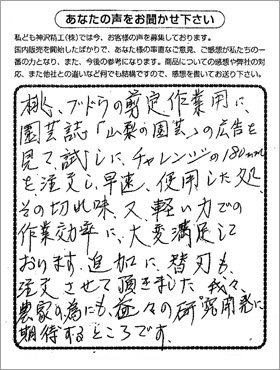 あなたの声をお聞かせ下さい
私ども神沢精工(株)では今、お客様の声を募集しております。
国内販売を開始したばかりで、あなた様の率直なご意見、ご感想が私たちの一
番の力となり、また、今後の参考になります。商品についての感想や弊社の対
応、また他社との違いなど何でも結構ですので、感想を書いてお送り下さい。
桃、ブドウの剪定作業用に、
園芸誌「山梨の園芸」の広告を
見て、試しに、チャレンジの180mm
を注文し、早速、使用した処、
その切れ味、又、軽い力での
作業効率に、大変満足して
おります。追加に、替刃も、
注文させて頂きました。我々、
農家の為にも、益々の研究開発に
期待するところです。